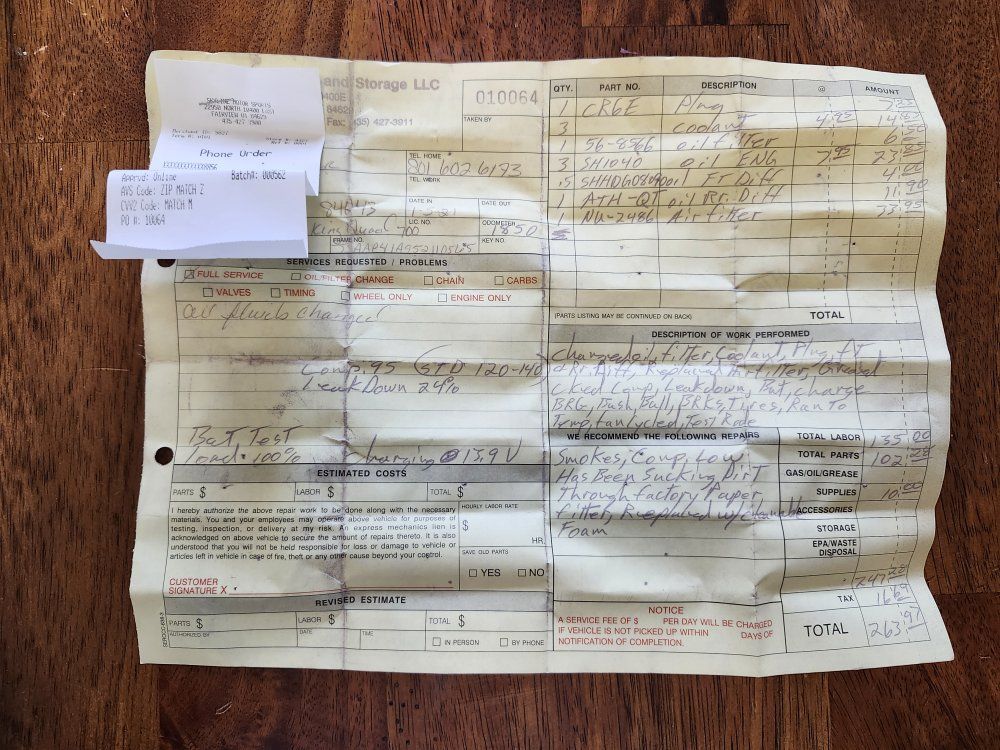 MOTOR SPORTS
22950 NORTH 10400 EAST
FAIRVIEW UT 84629
435 427 7900
Phone Order
Apprvd: Online
Batch#: 000562
AVS Code: ZIP MATCH Z
CVV2 Code: MATCH M
PO #: 10064
and Storage LLC
400E
8462
Fax: 35) 427-3911
010064
TAKEN BY
TEL. HOME
801 602 6193
TEL. WORK
84643
DATE IN
DATE OUT
King Quad 700
LIC. NO.
ODOMETER
1850
FRAME NO.
KEY NO.
SERVICES REQUESTED / PROBLEMS
FULL SERVICE
OIL/FILTER CHANGE
CHAIN
CARBS
VALVES
TIMING
WHEEL ONLY
ENGINE ONLY
all fluids changed
Comp. 95 (STD 120-140)
Leak Down 24%
Bat, Test
Load - 100% Charging @ 13.9 V
ESTIMATED COSTS
PARTS $
LABOR $
TOTAL $
I hereby authorize the above repair work to be done along with the necessary
materials. You and your employees may operate above vehicle for purposes of
testing, inspection, or delivery at my risk. An express mechanics lien is
acknowledged on above vehicle to secure the amount of repairs thereto. It is also
understood that you will not be held responsible for loss or damage to vehicle or
articles left in vehicle in case of fire, theft or any other cause beyond your control.
HOURLY LABOR RATE
$
HR.
SAVE OLD PARTS
YES NO
CUSTOMER
SIGNATURE X
REVISED ESTIMATE
PARTS $
LABOR $
TOTAL $
AUTHORIZED BY
DATE
TIME
IN PERSON
BY PHONE
QTY. PART NO. DESCRIPTION @ AMOUNT
1 CR6E Plug
3 Coolant 4.95 14.85
1 56-8966 oil filter 6.50
3 SH1040 oil ENG 7.95 23.85
.5 oil Fr Diff 4.00
1 ATH-QT oil Rr. Diff 11.90
1 NU-2486 Air filter 33.95
(PARTS LISTING MAY BE CONTINUED ON BACK)
TOTAL
DESCRIPTION OF WORK PERFORMED
Changed oil, filter, Coolant, Plug, Ft
& Rr. Diff, Replaced Air filter, Greased
cked Comp, Leakdown, Bat, charge
BRG, Bush, Ball, BRKs, Tires, Ran To
Temp, fan cycled, Test Rode
WE RECOMMEND THE FOLLOWING REPAIRS
Smokes, Comp, Low
Has Been Sucking Dirt
Through factory Paper,
filter, Replaced w/
Foam
TOTAL LABOR 135.00
TOTAL PARTS 102.28
GAS/OIL/GREASE
SUPPLIES 10.00
ACCESSORIES
STORAGE
EPA/WASTE
DISPOSAL
247.28
TAX 16.69
TOTAL 263.97
NOTICE
A SERVICE FEE OF $ PER DAY WILL BE CHARGED
IF VEHICLE IS NOT PICKED UP WITHIN DAYS OF
NOTIFICATION OF COMPLETION.